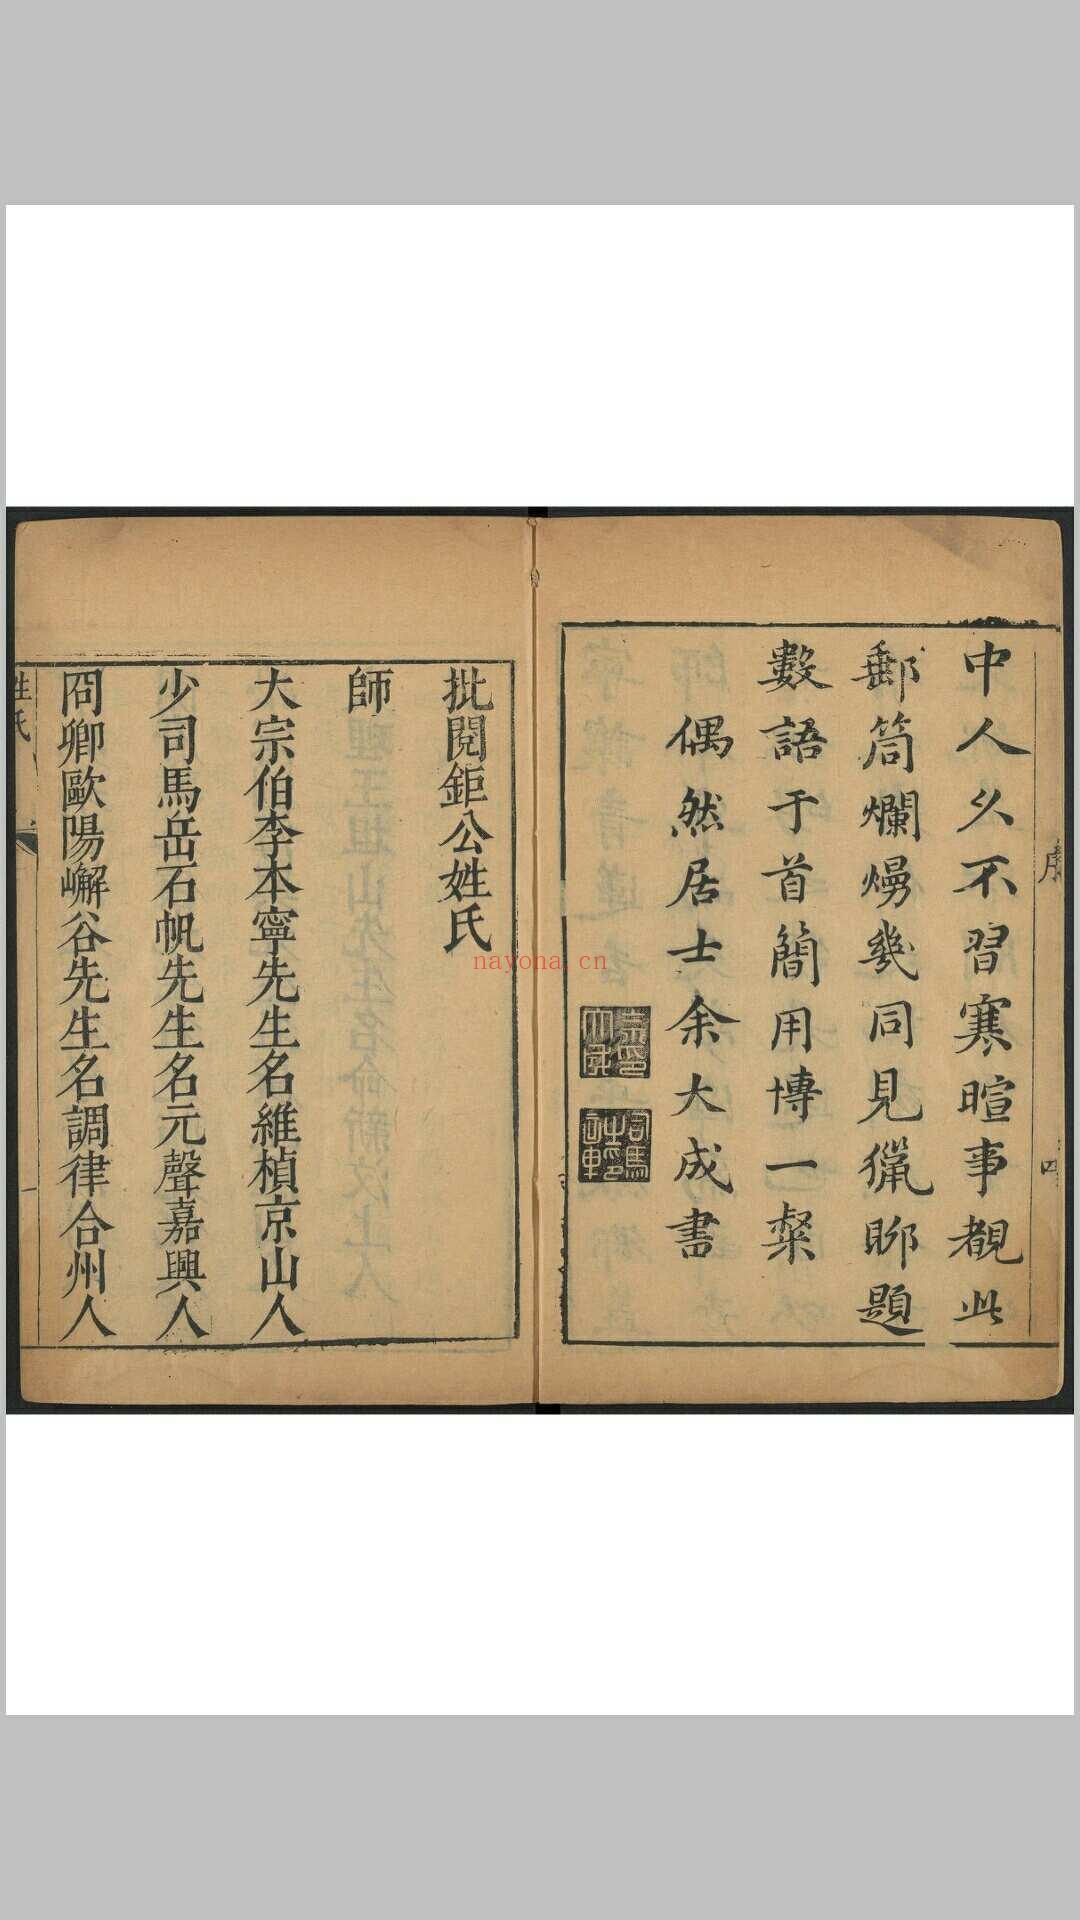 中人久不習寒暄事覩此
郵筒爛熳幾同見獵聊題
數語于首簡用博一粲
偶然居士余大成書
序
批閱鉅公姓氏
師
大宗伯李本寧先生名維楨京山人
少司馬岳石帆先生名元聲嘉興人
冏卿歐陽嶰谷先生名調律合州人
姓氏
一
nayona.cn